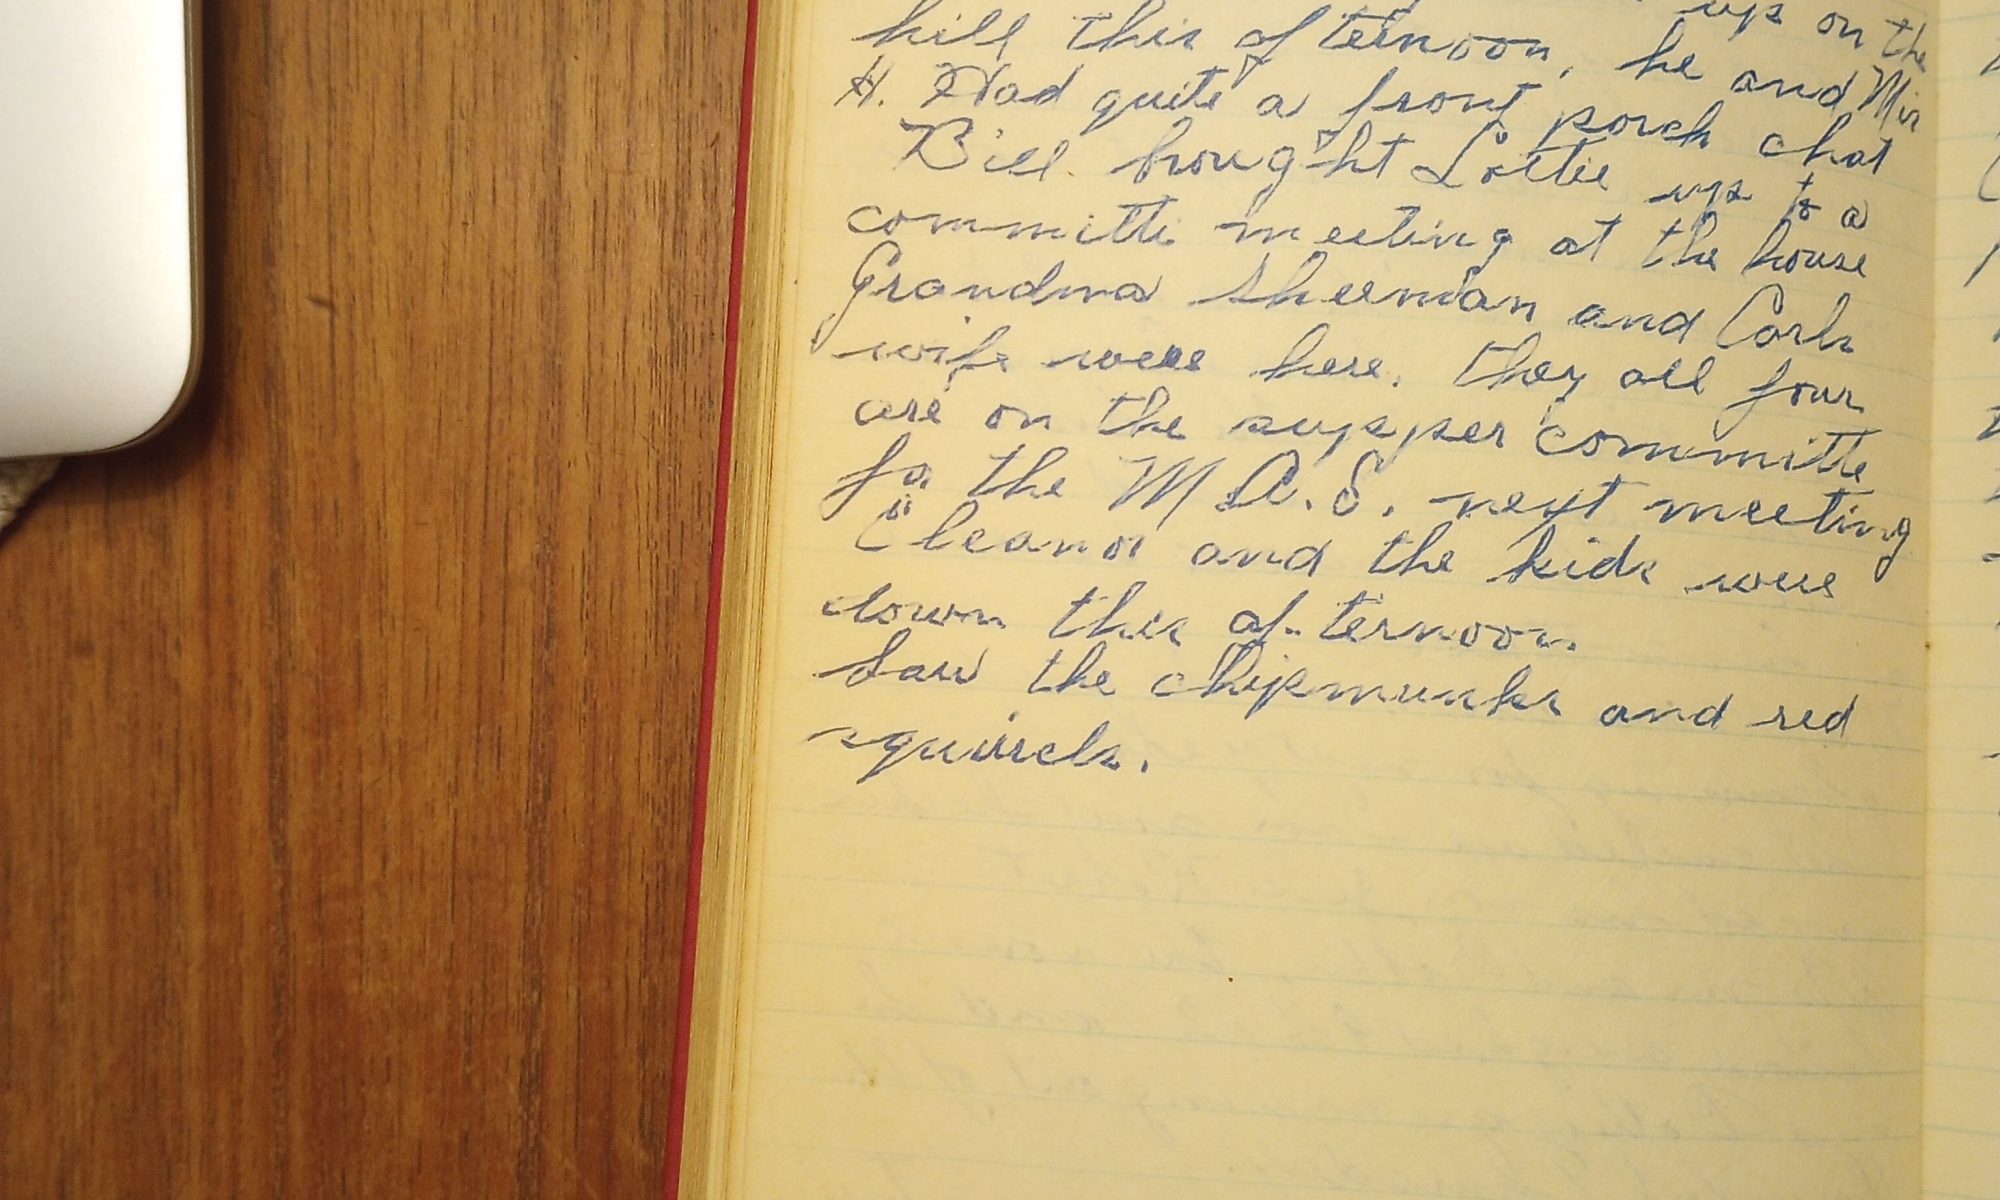 up on the
hill this afternoon, he and Mis
H. Had quite a front porch chat
Bill brought Lottie up to a
committi meeting at the house
Grandma Sherman and Carls
wife were here. they all four
are on the supper committe
for the M A.S. next meeting
Eleanor and the kids were
down this afternoon.
Saw the chipmunks and red
squirrels.